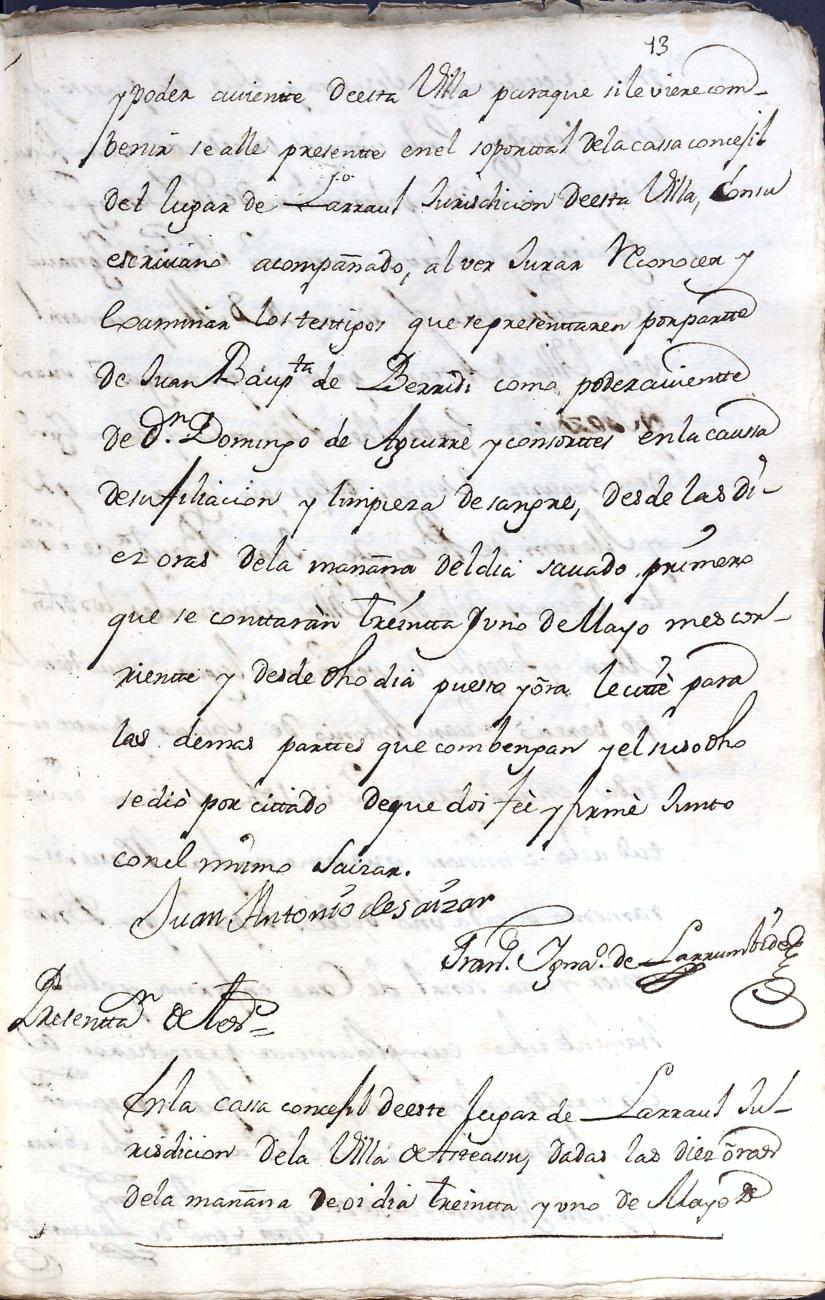 13
y poder aviente deesta Villa paraque sile viere com-
benir se alle presentte enel soportal dela cassa concejil
del lugar de Larraul Jurisdicion deesta Villa, Consu
escrivano acompañado, al ver Jurar Reconocer y
Examinar los testtigos que se presenttaren por partte
de Juan Baupta de Berridi como poderavientte
de Dn. Domingo de Aguirre y consorttes en la caussa
desufiliacion y limpieza de sangre, desde las di-
ez oras dela mañana del dia savado primero
que se conttaràn treintta y uno de Mayo mes cor-
rientte y desde dho dia puesto y ōra le cittè para
las demas parttes que combengan y el susodho
se diò por cittado deque doi feè y firmè Junto
con el mismo Saizar.
Juan Antonio de Saizar
Franco. Ignao. de Larrumbide
Presenttan. de tes.=
En la cassa concejil deeste lugar de Larraul Ju-
risdicion dela Villa de Asteassu, dadas las diez ōras
dela mañana de oi dia treintta y uno de Mayo de